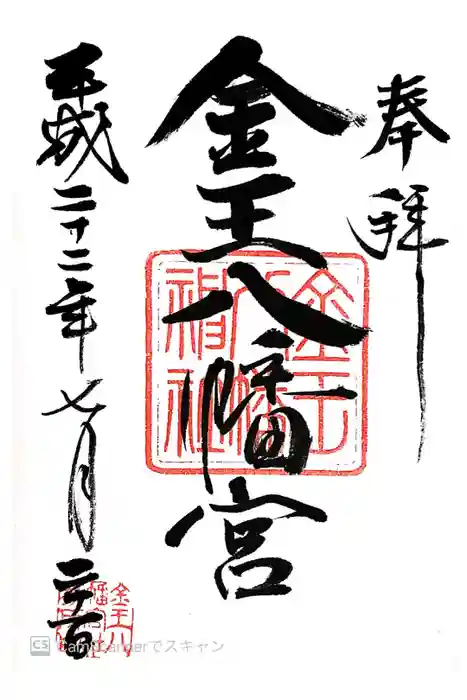 奉拝
金王八幡宮
金王
八幡
神社
平成二十二年七月二十一日
CS CamScannerでスキャン